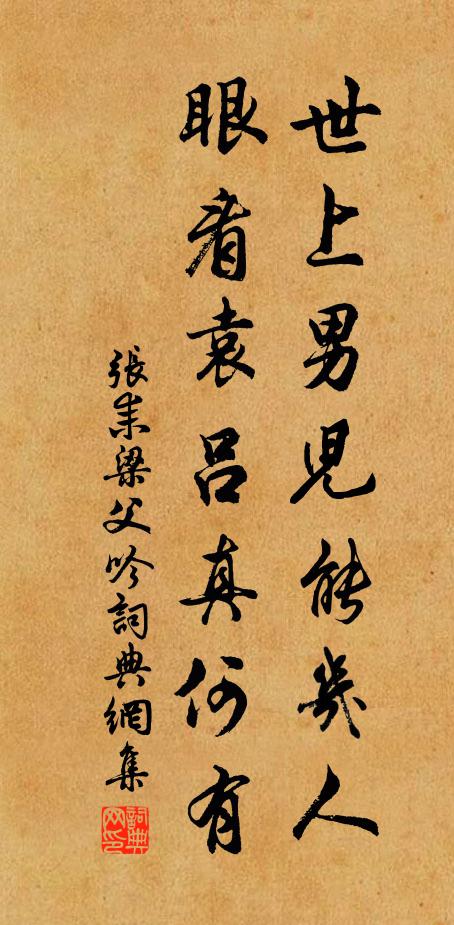 世上男兒能幾人
眼看袁呂真何有
張耒梁父吟詞典網集
詞典网印